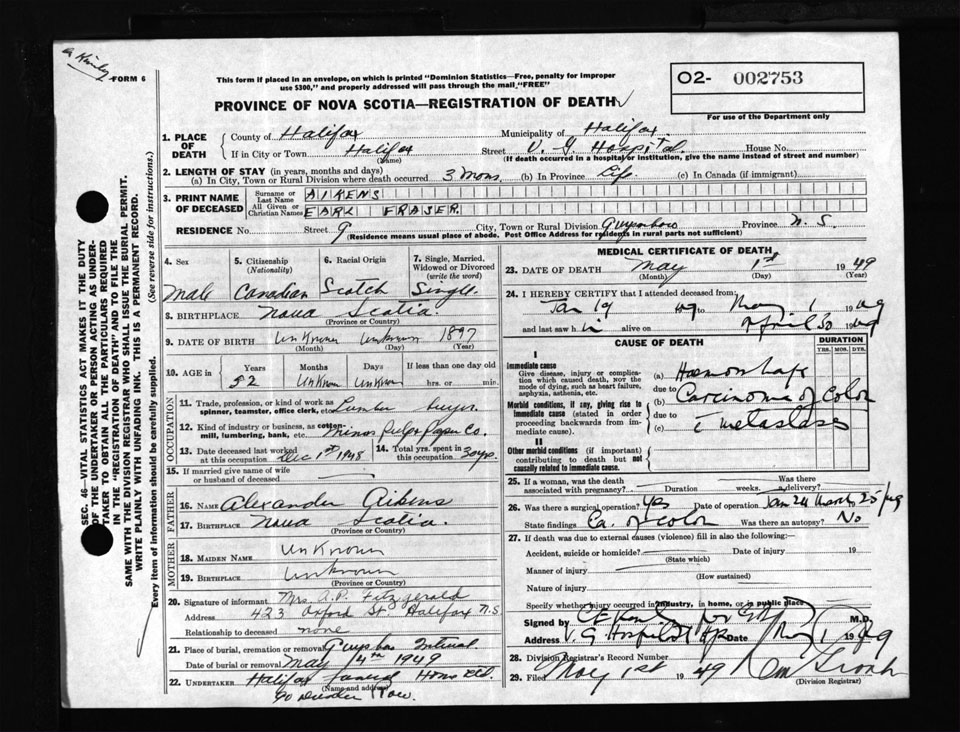 FORM 6
This form if placed in an envelope, on which is printed "Dominion Statistics—Free, penalty for improper
use $300," and properly addressed will pass through the mail "FREE"
O2- 002753
For use of the Department only
PROVINCE OF NOVA SCOTIA—REGISTRATION OF DEATH
1. PLACE OF DEATH { County of Halifax Municipality of Halifax
If in City or Town Halifax (Name) Street V. G. Hospital House No.
(If death occurred in a hospital or institution, give the name instead of street and number)
2. LENGTH OF STAY (in years, months and days)
(a) In City, Town or Rural Division where death occurred 3 mons. (b) In Province Life (c) In Canada (if immigrant)
3. PRINT NAME OF DECEASED { Surname or Last Name AIKENS
All Given or Christian Names EARL FRASER.
RESIDENCE No. Street City, Town or Rural Division Guysboro Province N. S.
(Residence means usual place of abode. Post Office Address for residents in rural parts not sufficient)
4. Sex 5. Citizenship (Nationality) 6. Racial Origin 7. Single, Married, Widowed or Divorced (write the word)
Male Canadian Scotch Single
8. BIRTHPLACE Nova Scotia.
(Province or Country)
9. DATE OF BIRTH Unknown Unknown 1897
(Month) (Day) (Year)
10. AGE in { Years Months Days If less than one day old
52 Unknown Unknown hrs. or min.
OCCUPATION
11. Trade, profession, or kind of work as spinner, teamster, office clerk, etc. Lumber buyer.
12. Kind of industry or business, as cotton-mill, lumbering, bank, etc. Pulp Paper Co.
13. Date deceased last worked at this occupation Dec 1st 1948 14. Total yrs. spent in this occupation 30 yrs.
15. If married give name of wife or husband of deceased
FATHER
16. NAME Alexander Aikens
17. BIRTHPLACE Nova Scotia.
MOTHER
18. MAIDEN NAME Unknown
19. BIRTHPLACE Unknown
(Province or Country)
20. Signature of informant Mrs. A.P. Fitzgerald
Address 423 Oxford St. Halifax N.S.
Relationship to deceased none
21. Place of burial, cremation or removal
Date of burial or removal May 4th 1949
22. UNDERTAKER Halifax Funeral Home Ltd.
(Name and address)
MEDICAL CERTIFICATE OF DEATH
23. DATE OF DEATH May 1st 1949
(Month) (Day) (Year)
24. I HEREBY CERTIFY that I attended deceased from:
Jan 19 49 to May 1 1949
and last saw h i alive on April 30 1949
CAUSE OF DEATH DURATION
YRS. MOS. DYS.
I
Immediate cause
Give disease, injury or complication which caused death, not the mode of dying, such as heart failure, asphyxia, asthenia, etc.
(a) Haemorrhage
due to
Morbid conditions, if any, giving rise to immediate cause (stated in order proceeding backwards from immediate cause).
(b) Carcinoma of Colon
due to
(c) c̄ metastases
II
Other morbid conditions (if important) contributing to death but not causally related to immediate cause.
25. If a woman, was the death associated with pregnancy? Duration weeks. Was there a delivery?
26. Was there a surgical operation? Yes Date of operation Jan 24 March 25/49
State findings Ca. of colon Was there an autopsy? No
27. If death was due to external causes (violence) fill in also the following:—
Accident, suicide or homicide? Date of injury 19
(State which)
Manner of injury
(How sustained)
Nature of injury
Specify whether injury occurred in industry, in home, or in public place
Signed by M.D.
Address V. G. Hospital Hfx Date May 1 1949
28. Division Registrar's Record Number
29. Filed May 1st 1949
(Division Registrar)
SEC. 46—VITAL STATISTICS ACT MAKES IT THE DUTY
OF THE UNDERTAKER OR PERSON ACTING AS UNDER-
TAKER TO OBTAIN ALL THE PARTICULARS REQUIRED
IN THE "REGISTRATION OF DEATH" AND TO FILE THE
SAME WITH THE DIVISION REGISTRAR WHO SHALL ISSUE THE BURIAL PERMIT.
WRITE PLAINLY WITH UNFADING INK. THIS IS A PERMANENT RECORD.
Every item of information should be carefully supplied. (See reverse side for instructions.)